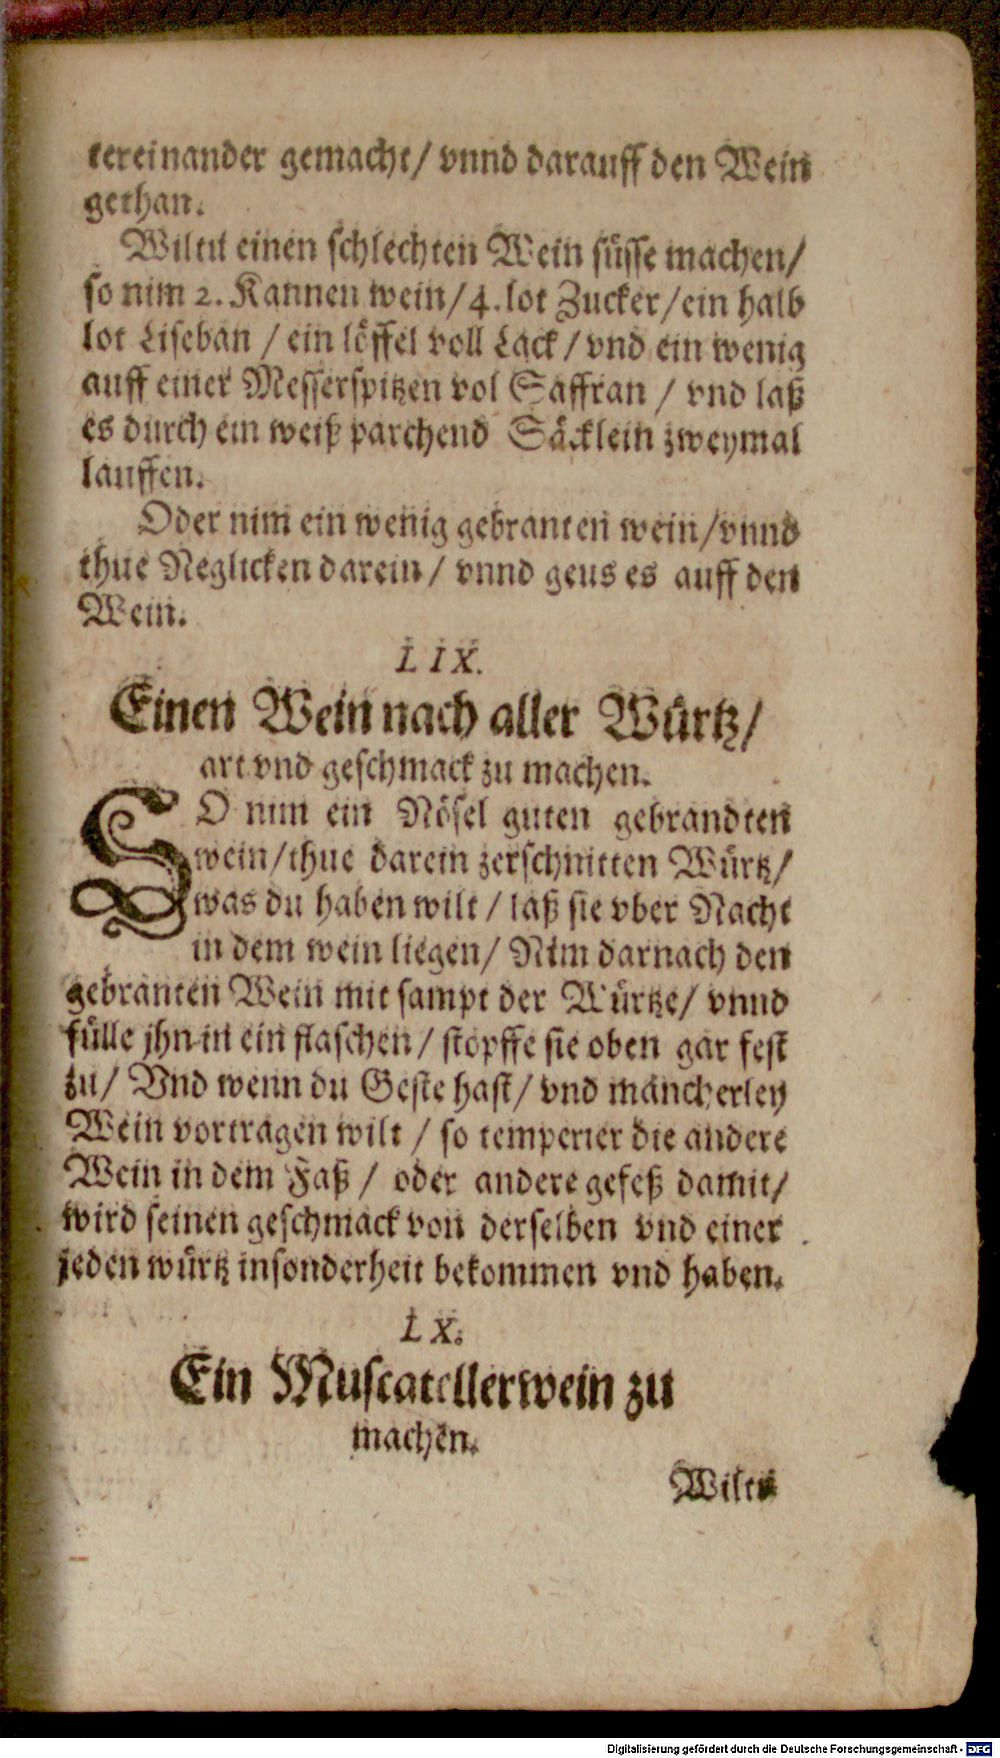 tereinander gemacht/ vnnd darauff den Wein
gethan.
Wiltu einen schlechten Wein süsse machen/
so nim 2. Kannen wein/ 4. lot Zucker/ ein halb
lot Liseban / ein löffel voll Lack / vnd ein wenig
auff einer Messerspitzen vol Saffran / vnd laß
es durch ein weiß parchend Säcklein zweymal
lauffen.
Oder nim ein wenig gebranten wein/ vnnd
thue Neglicken darein/ vnnd geus es auff den
Wein.
LIX.
Einen Wein nach aller Würtz/
art vnd geschmack zu machen.
SO nim ein Nösel guten gebrandten
wein/ thue darein zerschnitten Würtz/
was du haben wilt / laß sie vber Nacht
in dem wein liegen/ Nim darnach den
gebranten Wein mit sampt der Würtze/ vnnd
fülle jhn in ein flaschen/ stopffe sie oben gar fest
zu/ Vnd wenn du Geste hast/ vnd mancherley
Wein vortragen wilt / so temperier die andere
Wein in dem Faß / oder andere gefeß damit/
wird seinen geschmack von derselben vnd einer
jeden würtz insonderheit bekommen vnd haben.
LX.
Ein Muscatellerwein zu
machen.
Wiltu
Digitalisierung gefördert durch die Deutsche Forschungsgemeinschaft - DFG